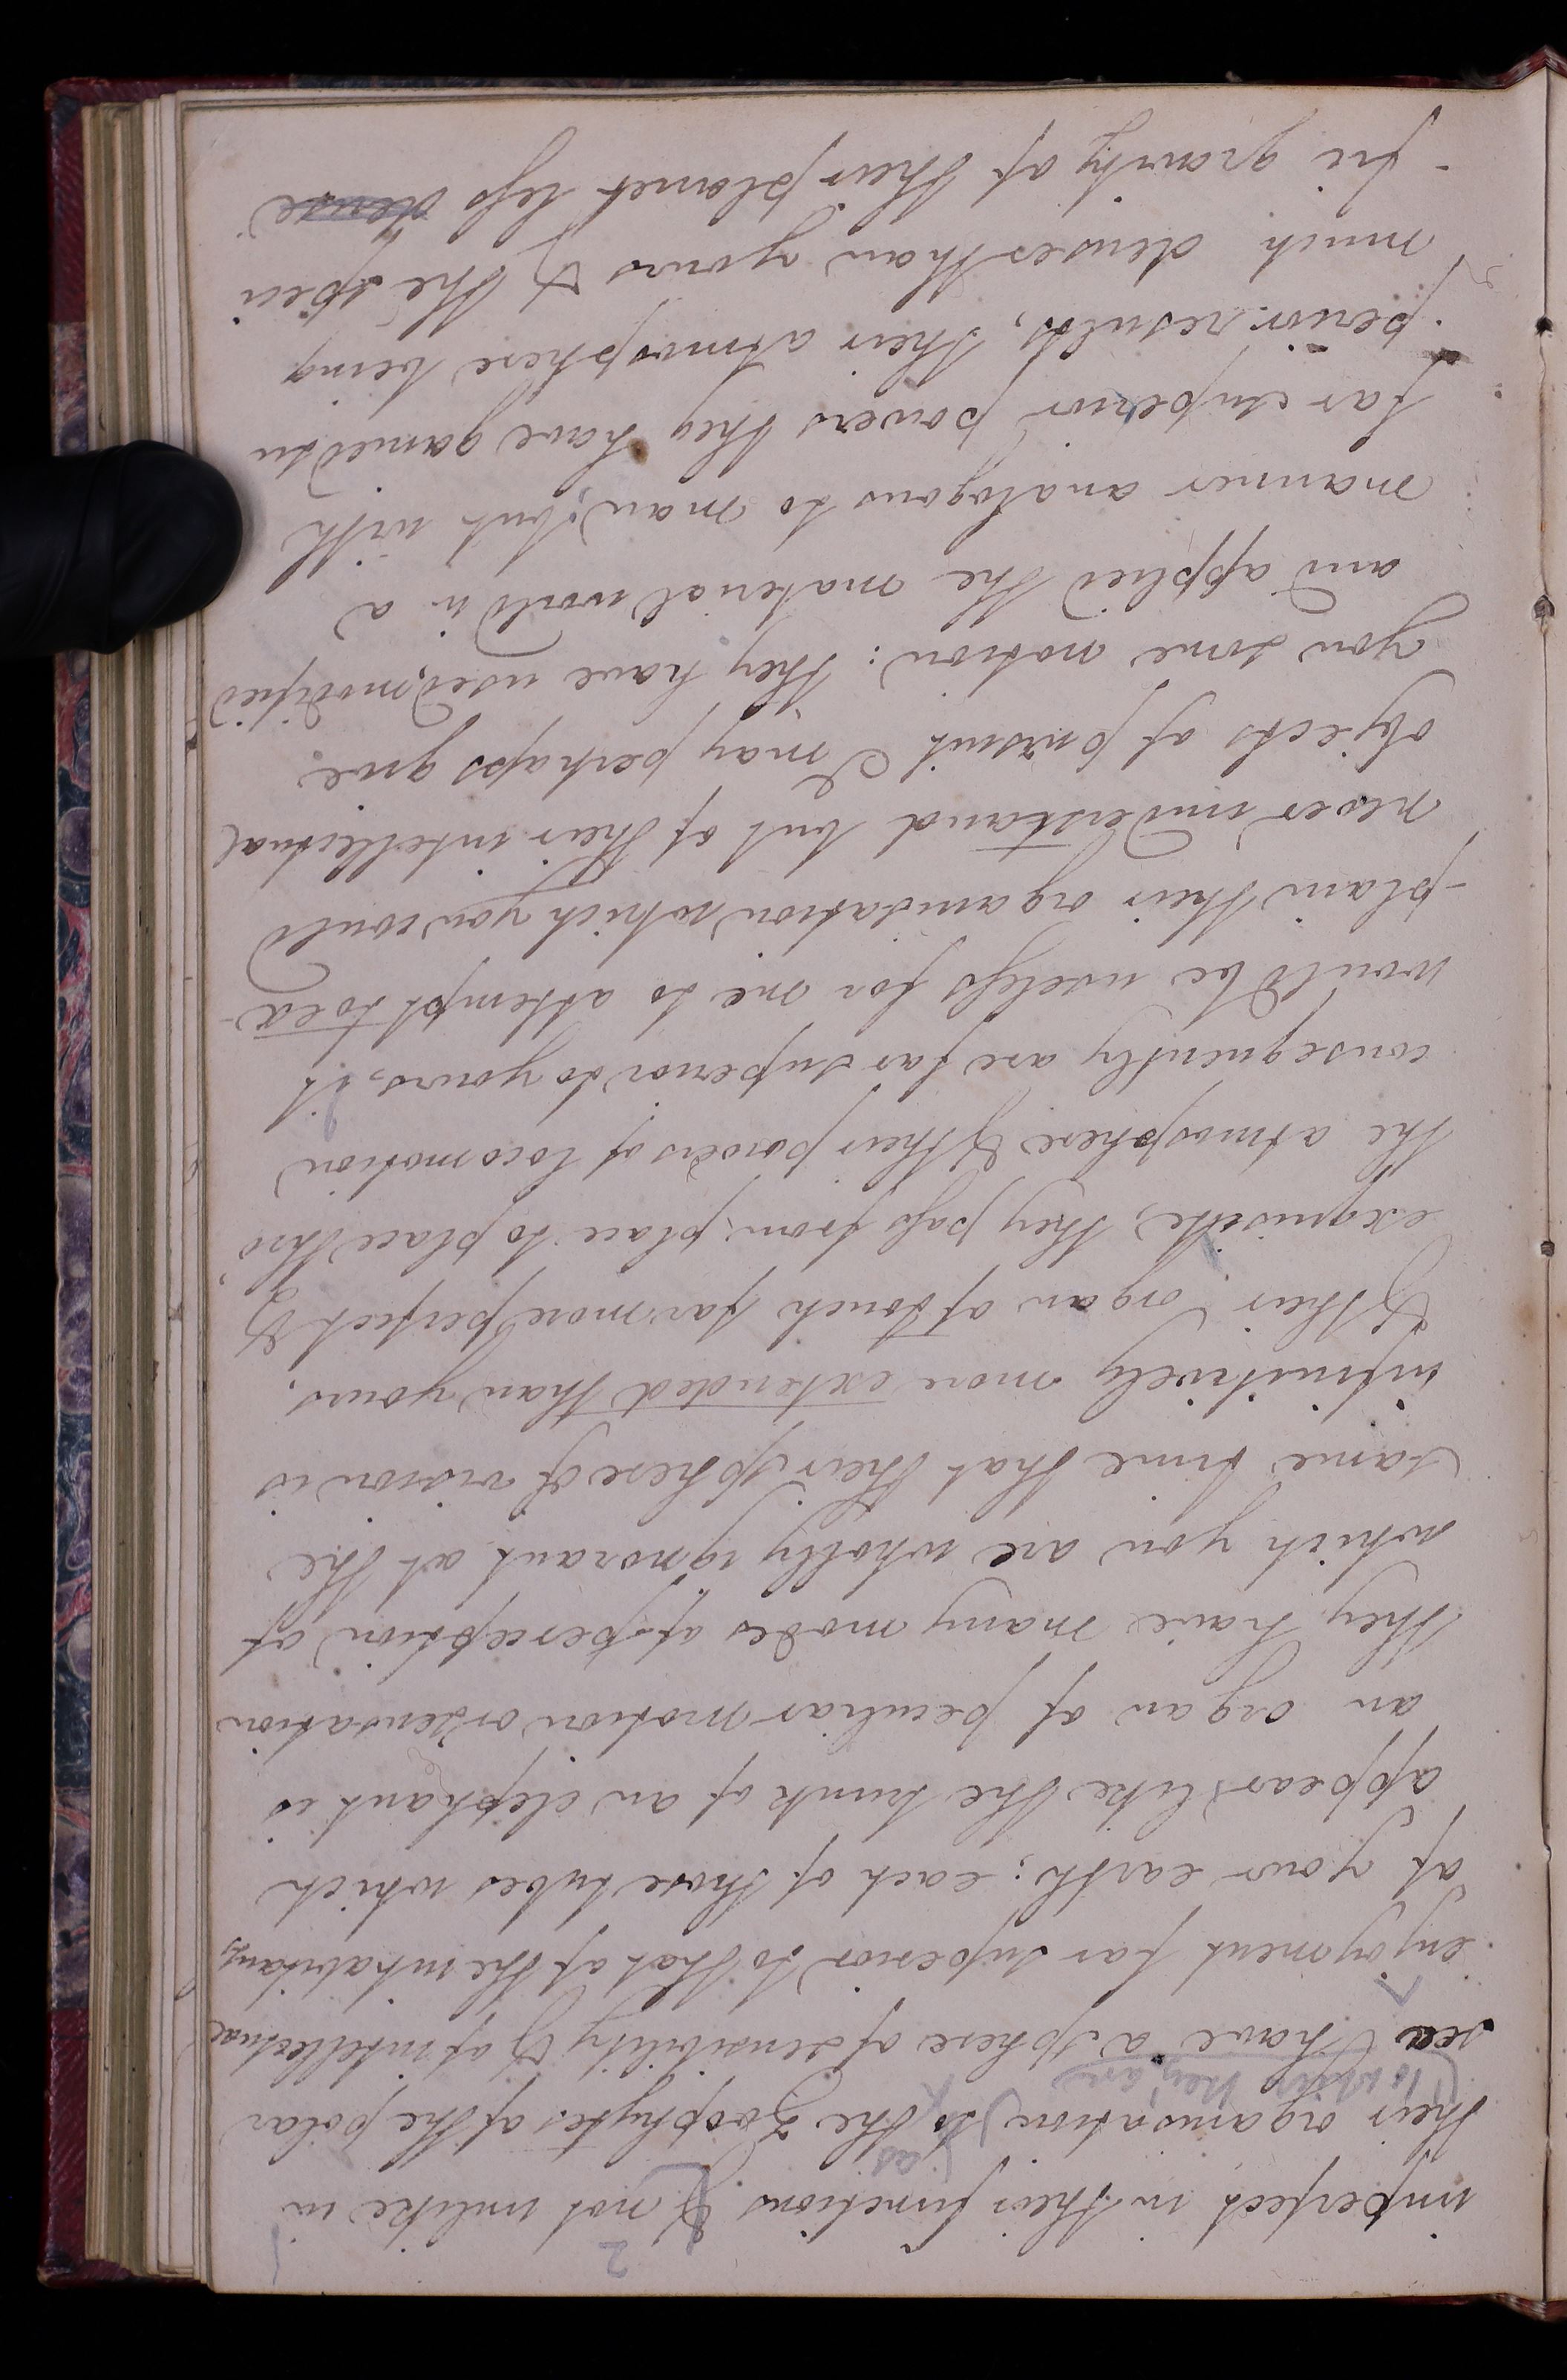 imperfect in their functions & not unlike in
their organisation to the Zoophytes of the polar
as
to which they are
sea have a sphere of sensibility & of intellectual
enjoyment far superior to that of the inhabitants
of your earth; each of those tubes which
appears like the trunk of an elephant is
an organ of peculiar motion or sensation
they have many modes of perception of
which you are wholly ignorant at the
same time that their sphere of vision is
infinitively more extended than yours,
& their organ of touch far more perfect &
exquisite, they pass from place to place thro'
the atmosphere & their powers of locomotion
consequently are far superior to yours, it
would be useless for me to attempt to ex-
-plain their organisation which you could
never understand but of their intellectual
objects of pursuit I may perhaps give
you some notion: they have used, modified
and applied the material world in a
manner analogous to man; but with
far superior powers they have gained su
perior results, their atmosphere being
much denser than yours & the speci
-fic gravity of their planet less dense